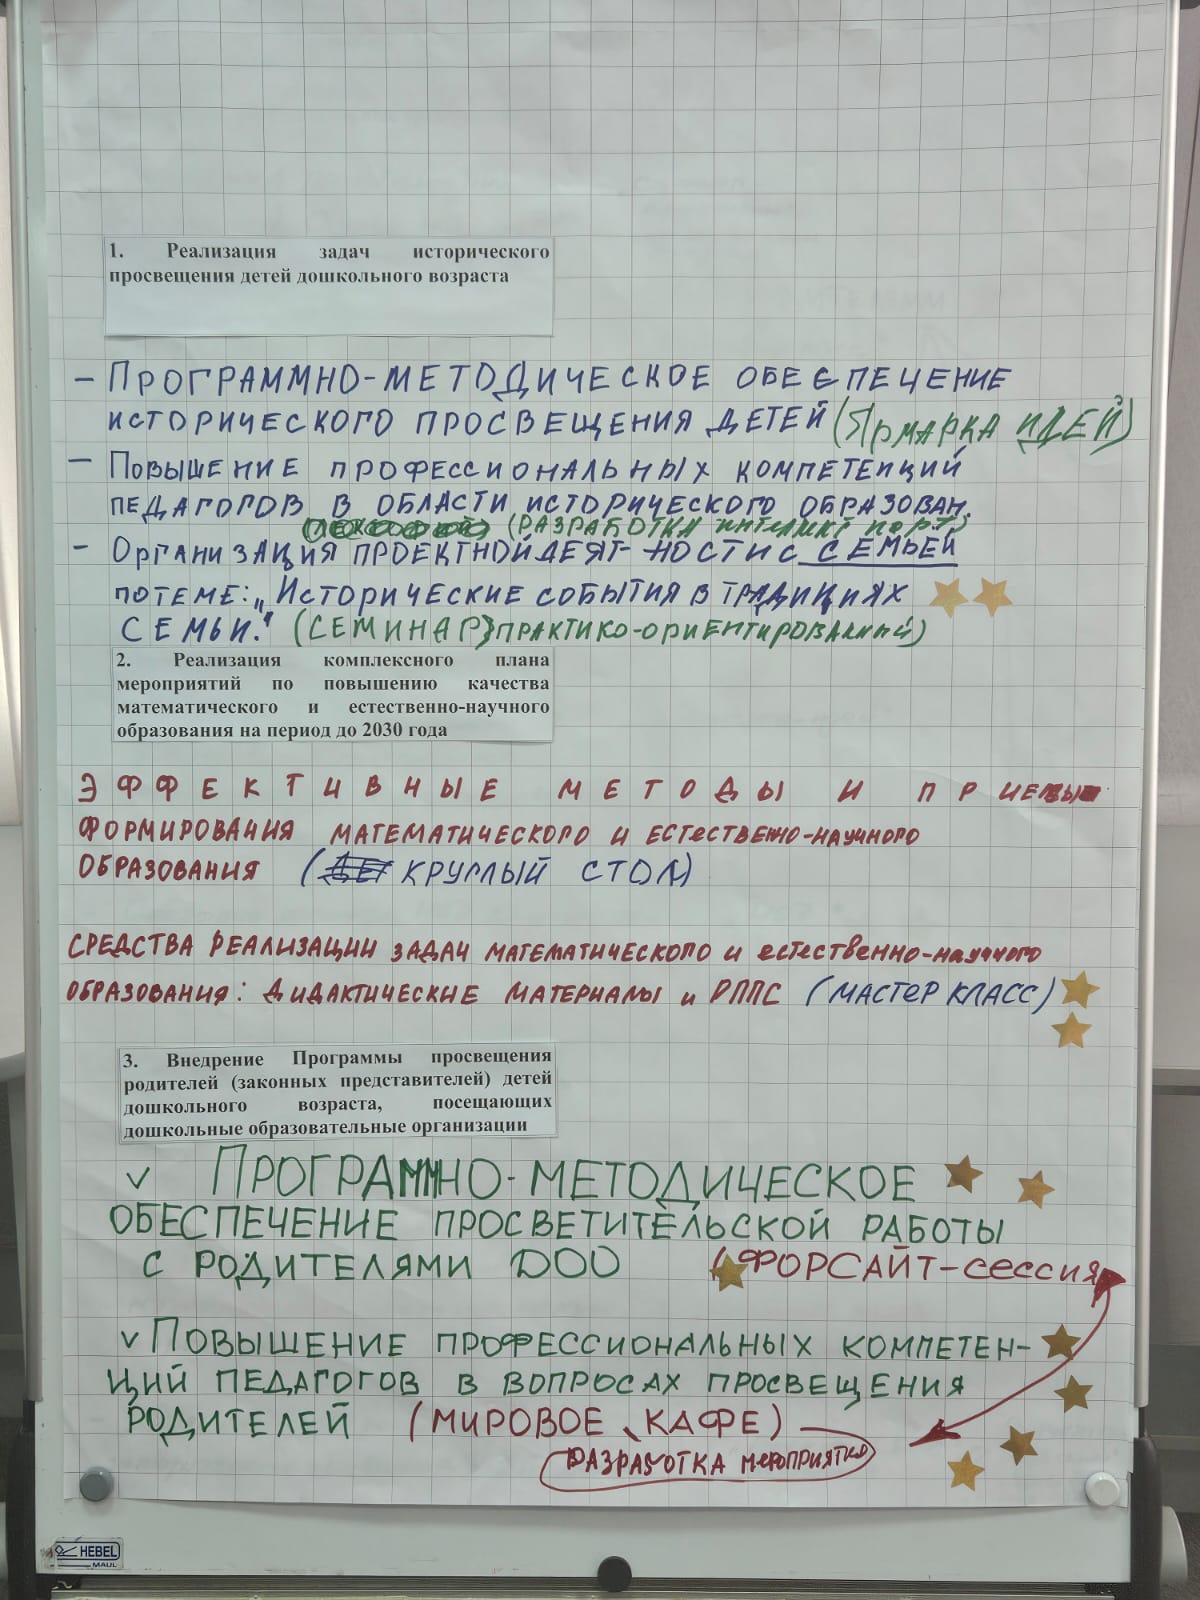 1. Реализация задач исторического
просвещения детей дошкольного возраста
– Программно-методическое обеспечение
исторического просвещения детей (Ярмарка идей)
– Повышение профессиональных компетенций
педагогов в области исторического образован.
(разработка интеллект карт)
– Организация проектной деят-ности с семьей
по теме: „Исторические события в традициях
семьи." (семинар практико-ориентированный)
2. Реализация комплексного плана
мероприятий по повышению качества
математического и естественно-научного
образования на период до 2030 года
Эффективные методы и приемы
формирования математического и естественно-научного
образования (круглый стол)
Средства реализации задач математического и естественно-научного
образования: дидактические материалы и РППС (мастер класс)
3. Внедрение Программы просвещения
родителей (законных представителей) детей
дошкольного возраста, посещающих
дошкольные образовательные организации
✓ Программно-методическое
обеспечение просветительской работы
с родителями ДОО (Форсайт-сессия
✓ Повышение профессиональных компетен-
ций педагогов в вопросах просвещения
родителей (мировое кафе)
разработка мероприятия
HEBEL
MAUL